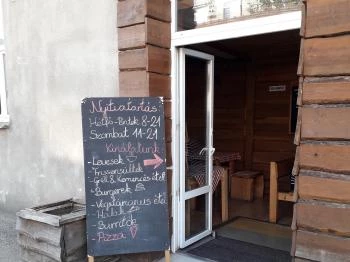 Nyitvatartás:
Hétfő-Péntek 8-21
Szombat 11-21
Kínálatunk
- Levesek
- Frissensültek
- Grill & Kemencés étel
- Burgerek
- Vegetáriánus étel
- Halak
- Burritok
- Pizza